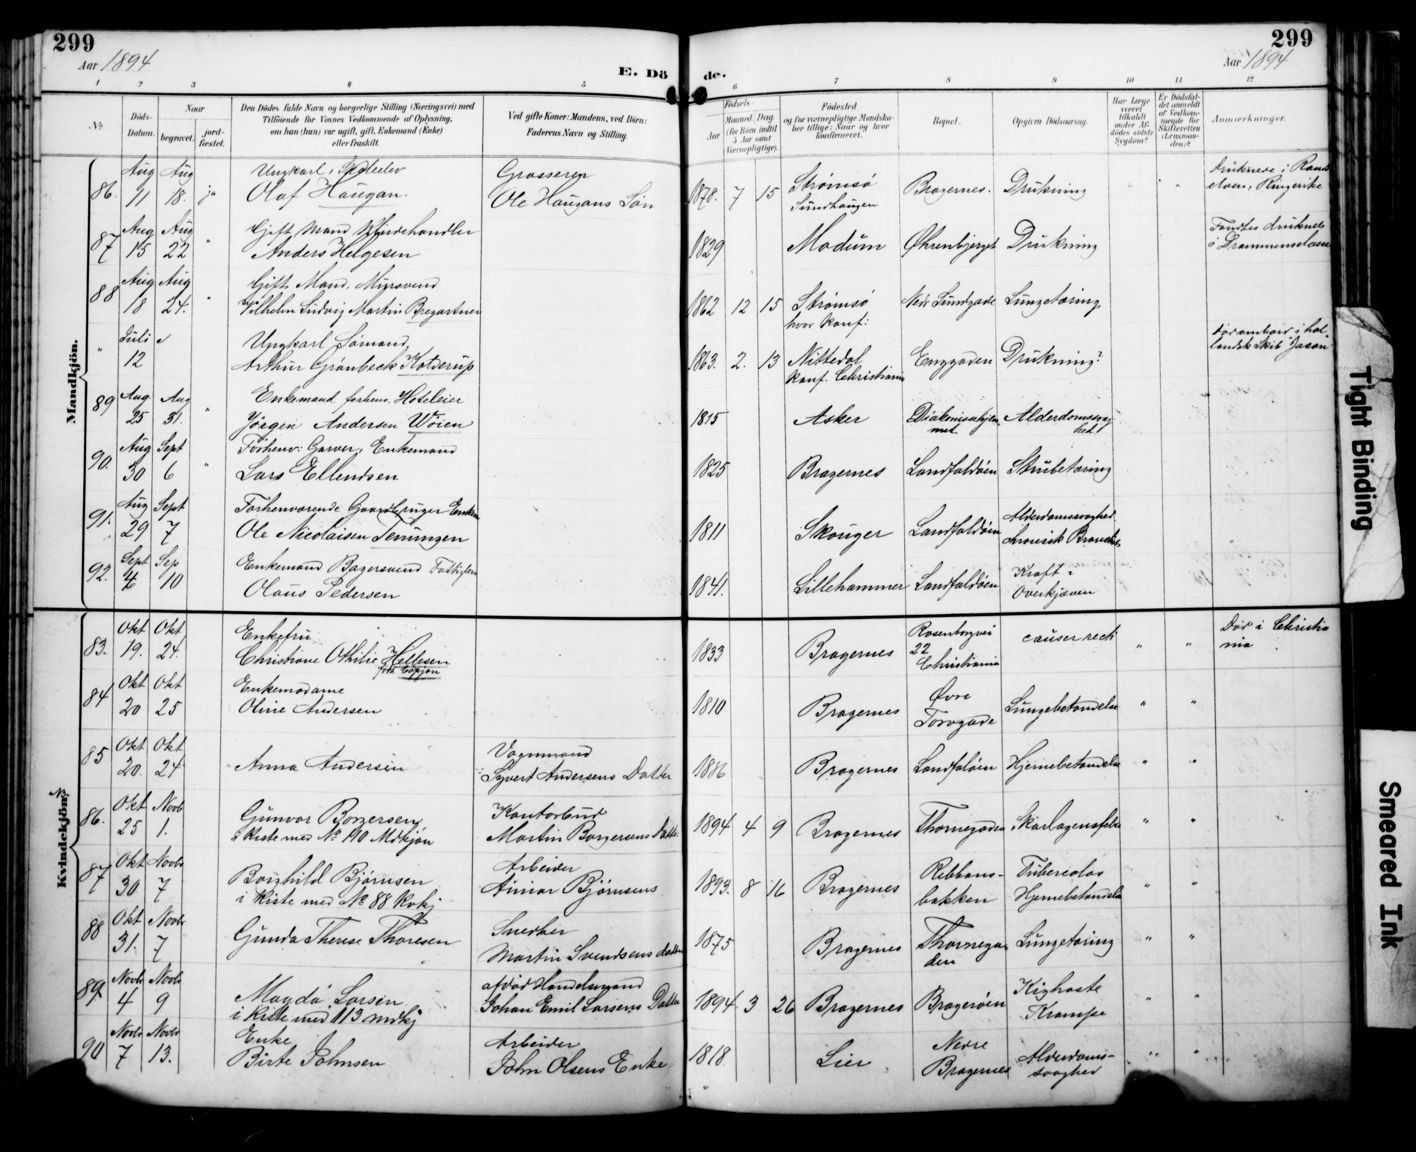 299
Aar 1894
E. Dö
de.
299
Aar 1894
1 2 3 4 5
6 7 8 9 10 11 12
No.
Döds-
Datum.
Naar
begravet.
jord-
fæstet.
Den Dödes fulde Navn og borgerlige Stilling (Næringsvei) med
Tilföiende for Voxnes Vedkommende af Oplysning,
om han (hun) var ugift, gift, Enkemand (Enke)
eller fraskilt.
Ved gifte Koner: Mandens, ved Börn:
Faderens Navn og Stilling.
Födsels-
Aar
Maaned Dag
(for Börn indtil
5 Aar samt
Værnepligtige).
Födested
og for værnepligtige Mandsku-
ber tillige: Naar og hvor
konfirmeret.
Bopæl.
Opgiven Dödsaarsag.
Har Læge
været
tilkaldt
under Af-
dödes sidste
Sygdom?
Er Dödsfal-
det anmeldt
af Vedkom-
mende for
Skifteretten
(Lensman-
den)?
Anmærkninger.
Mandkjön.
86. Aug 11 Aug 18. ja Ungkarl, Skoleelev
Olaf Haugan. Grosserer
Ole Haugans Søn 1878. 7 15 Strømsø
Sundhaugen Bragernes. Drukning druknede i Rands
elven, Ringerike
87 Aug 15 Aug 22 " Gift Mand
Anders Helgesen 1829 Modum Øhrenbjerget Drukning Fandtes druknet
i Drammenselven
88 Aug 18 Aug 24. " Gift Mand. Mursvend
Vilhelm Ludvig Martin Bregartner 1862 12 15 Strømsø
hvor konf: Nedr Sundgade Lungetæring
" Juli 12 Ungkarl Sømand
Arthur Grönbech Kolderup 1863. 2. 13 Nittedal
konf. Christiania Enggaden Drukning? for ombord i hol
landsk Skib "Jason"
89 Aug. 25 Aug 31. " Enkemand forhenv. Hoteleier
Jörgen Andersen Wöien 1815 Asker Diakonissehjem
met Alderdomssvag
hed
90. Aug 30 Sept 6 " Forhenv: Garver, Enkemand
Lars Ellendsen 1825 Bragernes Landfaldöen Strubetæring
91. Aug 29 Sept 7 Forhenværende Gaardbruger Enkem
Ole Nicolaisen 1811 Skouger Landfaldöen Alderdomssvaghed
kronisk Bronchit
92. Sept 4 Sep 10 Enkemand Bagersvend Fattiglem
Olaus Pedersen 1841. Lillehammer Landfaldöen Kræft i
Overkjæven
Kvindekjön.
83. Okt 19. Okt 24. Enkefru
Christiane Othilie Hellesen
født 1833 Bragernes Rosenborgvei
22
Christiania causer recti " " Död i Christia
nia
84 Okt 20 Okt 25 Enkemadame
Oline Andersen 1810 Bragernes Øvre
Torvgade Lungebetændelse " "
85 Okt 20. Okt 24 Anna Andersen Vognmand
Syvert Andersens Datter 1886 Bragernes Landfalöen Hjernebetændelse " "
86. Okt 25 Novb 1. Gunvor Borgersen,
i Kiste med No 110 Mdkjön Kontorbud
Martin Borgersens Datter 1894 4 9 Bragernes Thornegaden Skarlagensfeber " "
87 Okt 30 Novbr 7 Borghild Bjørnsen
i Kiste med No 88 Kvkj Arbeider
Bjørnsens 1893. 8 16 Bragernes Ribbans-
bakken Tuberculos
Hjernebetændelse " "
88 Okt 31. Novbr 7 Gunda Therese Thoresen Snedker
Martin Svendsens datter 1875 Bragernes Thornega
den Lungetæring " "
89 Novbr 4 Novbr 9 Magda Larsen
i Kiste med 113 mdkj afdöd Handelsmand
Johan Emil Larsens Datter 1894 3 26 Bragernes Bragerøen Kighoste
Krampe " "
90 Novbr 7 Novbr 13. Enke
Birte Johnsen Arbeider
John Olsens Enke 1818 Lier Nedre
Bragernes Alderdoms-
svaghed " "
Tight Binding
Smeared Ink